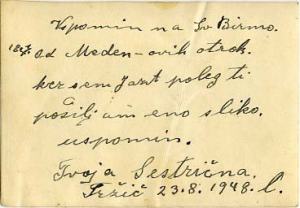 Vspomin na Sv Birmo.
od Meden-ovih otrok.
ker sem jazt poleg ti
pošiljam eno sliko.
uspomin.
Tvoja Sestrična.
Tržič 23.8.1948. l.